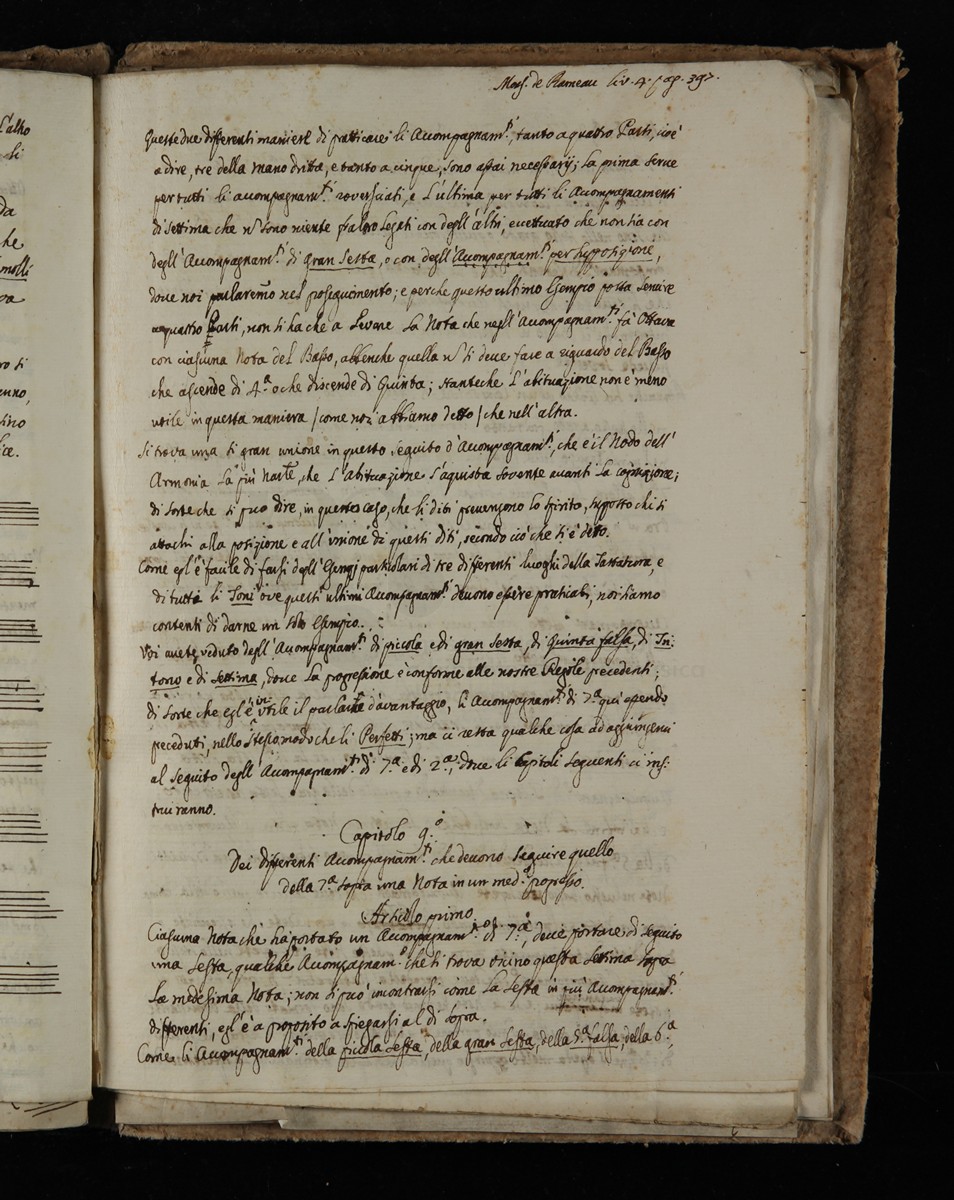 Mons. de Rameau liv. 4. pag. 397.
Queste due differenti maniere di pratticare li Accompagnam.ti, tanto a quattro Parti, cioè
a dire, tre della mano dritta, e tanto a cinque, sono assai necessarij; La prima serve
per tutti li accompagnam.ti roversciati, e L'ultima per tutti li Accompagnamenti
di settima che nō sono niente fra loro Legati con degl'altri, eccettuato che non sia con
degl'Accompagnam.ti di gran Sesta, o con degl'Accompagnam.ti per supposizione,
dove noi parlaremo nel proseguimento; e perche questo ultimo Esempio possa servire
a quattro Parti, non si ha che a Levare La Nota che negl'Accompagnam.ti fà Ottava
con ciascuna Nota del Basso, abbenche quella nō si deve fare a riguardo del Basso
che ascende di 4.a o che discende di Quinta; stanteche L'abituazione non è meno
utile in questa maniera / come noi abbiamo detto / che nell'altra.
Si trova una si gran unione in questo seguito d'Accompagnam.ti, che è il Nodo dell'
Armonia La più, che L'abituazione s'aquista sovente avanti La cognizione;
di sorte che si puo dire, in questo caso, che li diti prevengono lo spirito, supposto chi si
attachi alla posizione e all'unione di questi diti, secondo ciò che si è detto.
Come egl'è facile di farsi degl' particolari di tre differenti luoghi della Tastatura, e
di tutti li Toni ove questi ultimi Accompagnam.ti devono essere praticati, noi siamo
contenti di darne un solo Esempio.
Voi avete veduto degl'Accompagnam.ti di piccola e di gran sesta, di Quinta falsa, di Tri:
tono e di settima, dove La progressione è conforme alle nostre Regole precedenti;
di sorte che egl'è inutile il parlarne d'avantaggio, li Accompagnam.ti di 7.a qui essendo
preceduti, nello stesso modo che li Perfetti; ma ci resta qualche cosa ad aggiungervi
al seguito degll'Accompagnam.ti di 7.a e di 2.a, dove li Capitoli seguenti ci ins:
truiranno.
Capitolo 9.o
Dei differenti Accompagnam.ti che devono seguire quello
della 7.a sopra una Nota in un med.o progresso.
Articolo primo
Ciascuna Nota che ha portato un Accompagnam.to di 7.a, deve portare di seguito
una Sesta, qualche Accompagnam.o che si trova vicino questa settima sopra
La medesima Nota; non si può incontrarsi come La Sesta in più Accompagnam.ti
differenti, egl'è a proposito a spiegarsi al di sopra.
Come li Accompagnam.ti della piccola Sesta, della gran Sesta, della 5.a falsa, della 6.a,